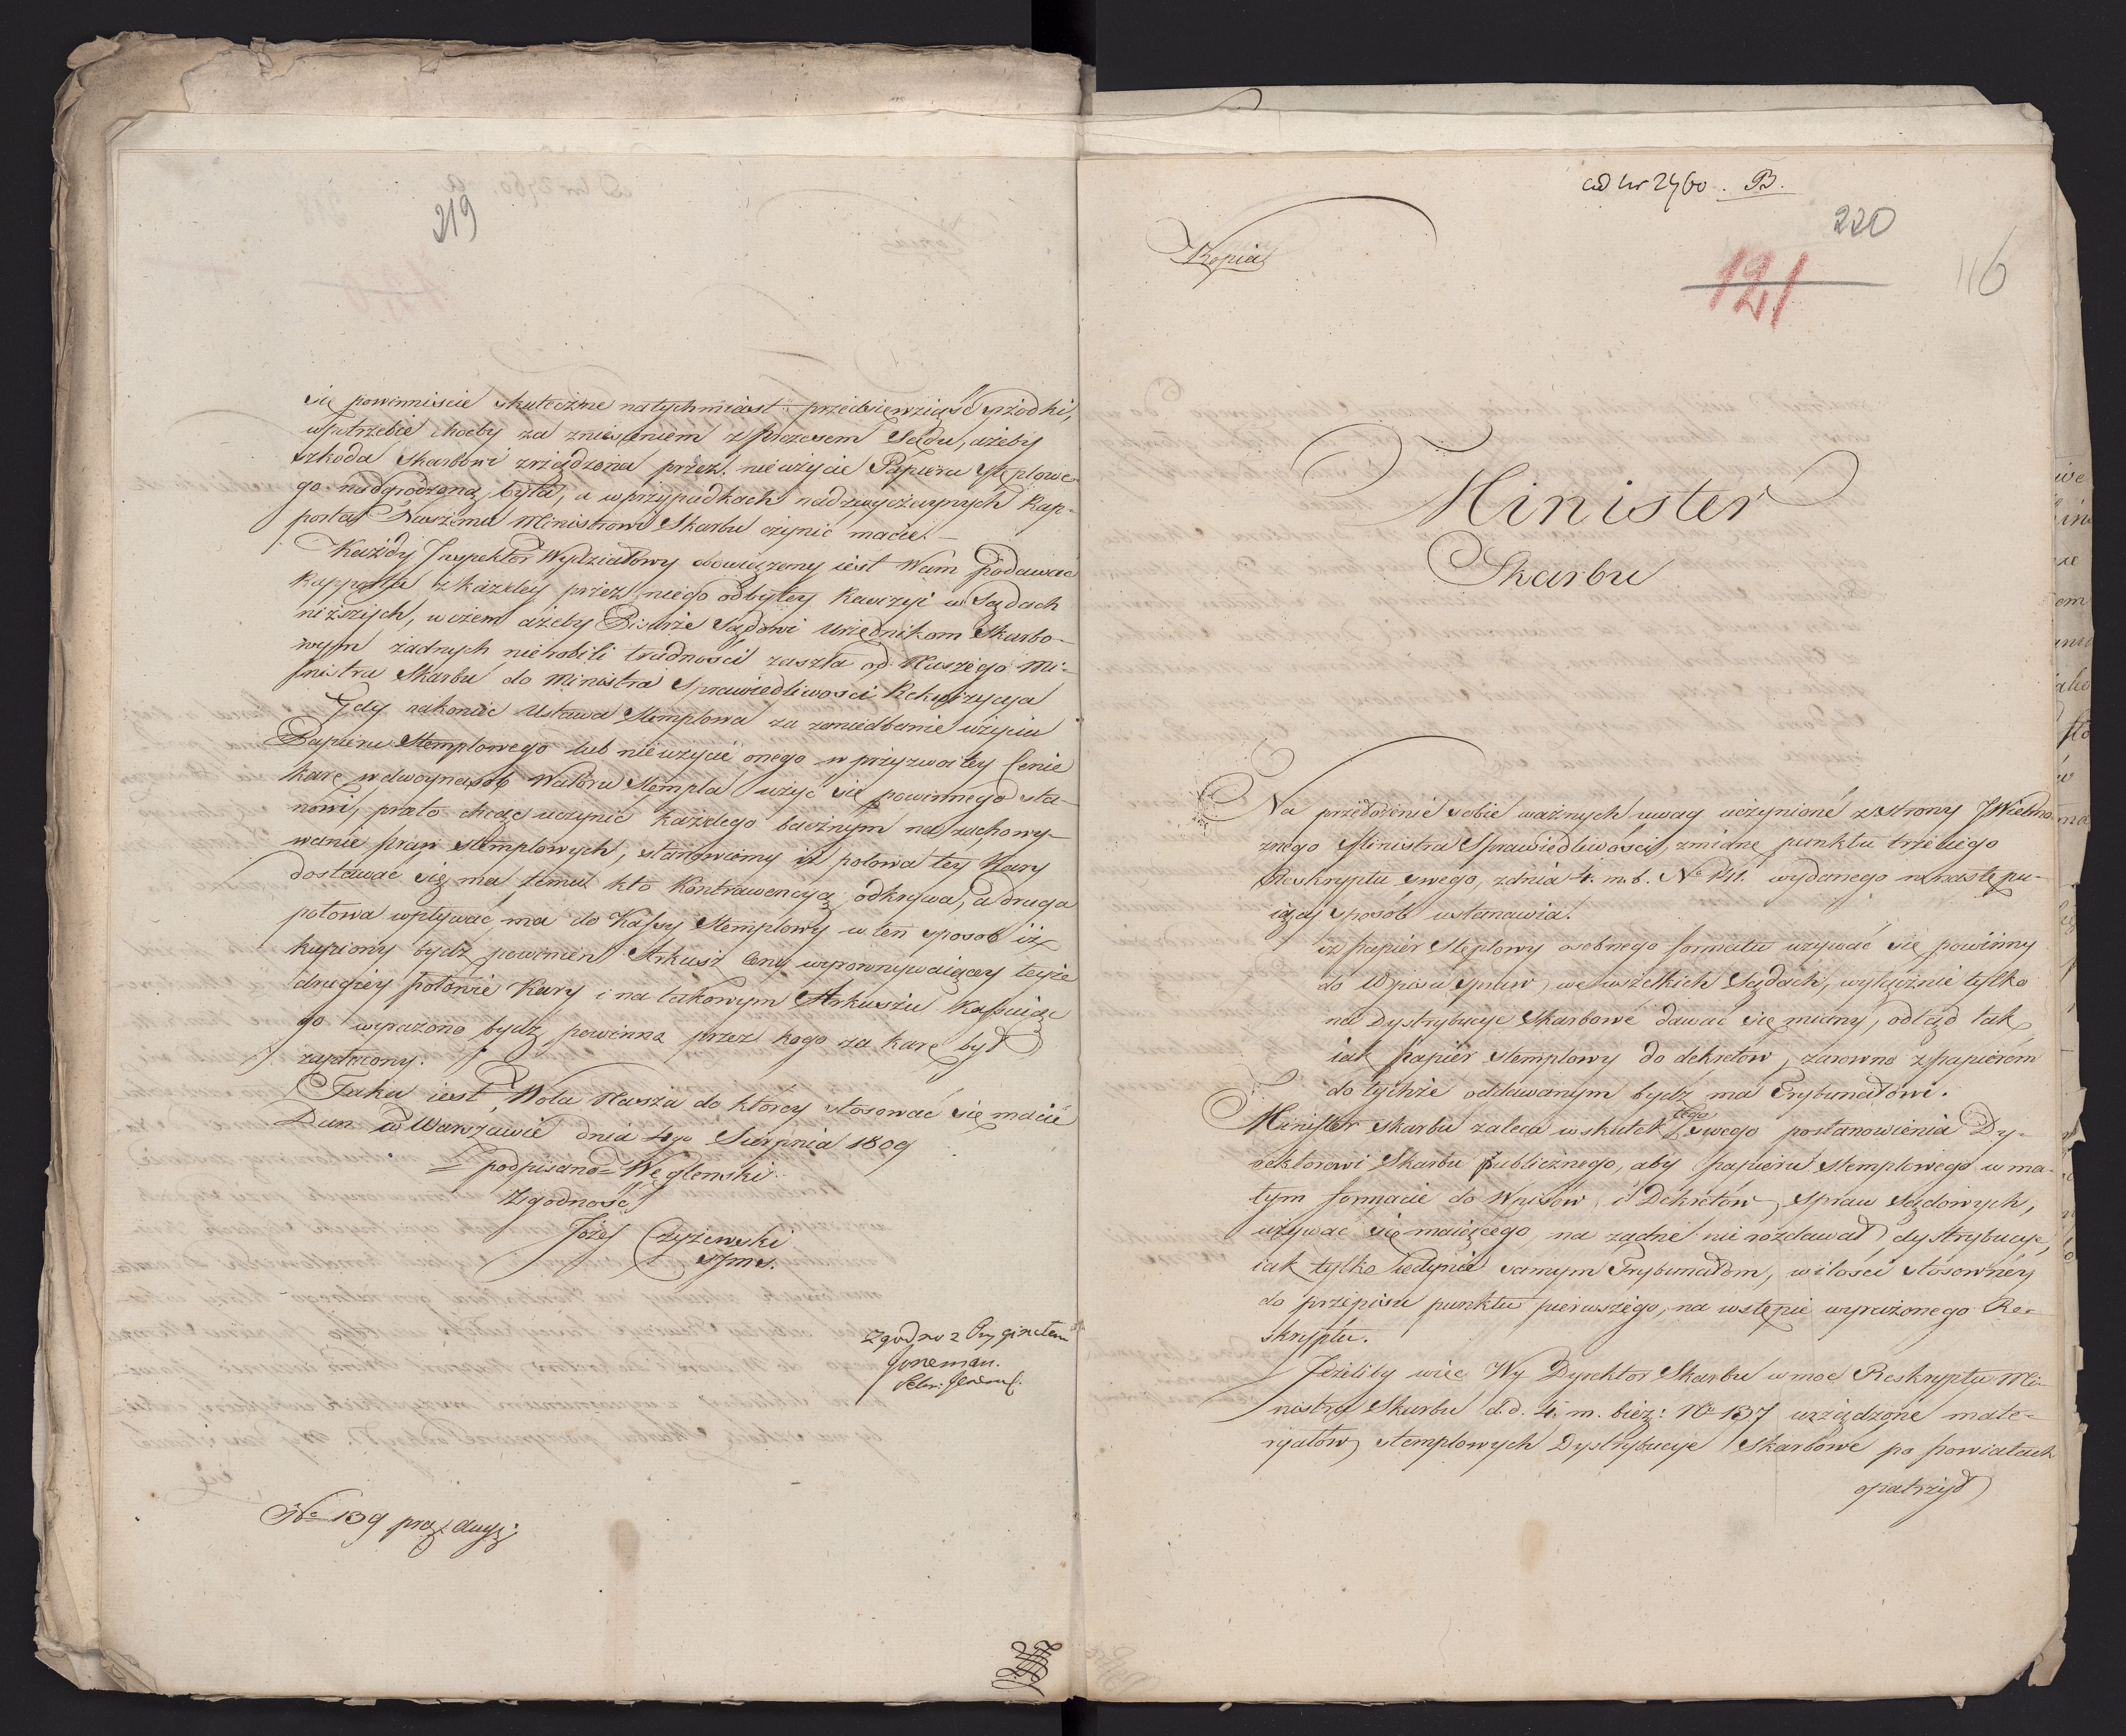 219
się powinniscie skuteczne natychmiast przedsięwziąść szrodki,
w potrzebie choćby za zniesieniem z Prezesem Sądu, ażeby
szkoda Skarbowi zrządzona przez nieużycie Papieru Stęplowe-
go nadgrodzoną była, a w przypadkach nadzwyczaynych Rap-
porta Naszemu Ministrowi Skarbu czynić macie. —
Każdy Inspektor Wydziałowy obowiązany iest Wam podawać
Rapporta z każdey przez niego odbytey Rewizyi w Sądach
niższych, w czem ażeby Pisarze Sądowi Urzędnikom Skarbo-
wym żadnych nierobili trudności zaszła od Naszego Mi-
nistra Skarbu do Ministra Sprawiedliwości Rekwizycya
Gdy nakoniec Ustawa Stemplowa za zaniedbanie użycia
Papieru Stemplowego lub nieużycie onego w przyzwoitey Cenie
karę w dwoynasób Waloru Stempla użyć się powinnego sta-
nowi, przeto chcąc uczynić każdego bacznym na zachowy-
wanie praw stemplowych, stanowiemy iż połowa tey Kary
dostawać się ma temu kto Kontrawencyą odkrywa, a druga
połowa wpływać ma do Kassy Stemplowy w ten sposób iż
kupiony bydź powinien Arkusz Ceny wyrownywaiącey teyże
drugiey połowie Kary i na takowym Arkuszu Kassuiąc
go wyrażono bydź powinna przez kogo za karę był
zapłacony.
Taka iest Wola Nasza do którey stosować się macie
Dan w Warszawie dnia 4go Sierpnia 1809
= podpisano = Węglenski
Zgodność
Józef Czyżewski
Zgodno z Oryginałem
No 139 prez: dupl:
ad Nr 2460. B.
220
Kopia
121
116
Minister
Skarbu
Na przedłożenie sobie ważnych uwag uczynione z strony JWielmo-
żnego Ministra Sprawiedliwości, zmianę punktu trzeciego
Reskryptu swego, z dnia 4. m. b. No 141. wydanego w następu-
iący sposób ustanawia.
iż papier Stęplowy osobnego formatu używać się powinny
do Wpisu spraw we wszelkich Sądach, wyłącznie tylko
na Dystrybucye Skarbowe dawać się miany, odtąd tak
iak papier stemplowy do dekretów, zarowno z papierem
do tychże oddawanym bydź ma Trybunałowi.
Minister Skarbu zaleca w skutek tego swego postanowienia Dy-
rektorowi Skarbu publicznego, aby papieru stemplowego w ma-
łym formacie do Wpisów, i Dekretów, spraw Sądowych,
używać się maiącego, na żadne nie rozdawał dystrybucye,
iak tylko iedynie samym Trybunałom, w ilości stosowney
do przepisu punktu pierwszego, na wstępie wyrażonego Re-
skryptu.
Jeżeliby więc Wy Dyrektor Skarbu w moc Reskryptu Mi-
nistra Skarbu d.d. 4. m. bież: No 137 urządzone mate-
ryałów stemplowych Dystrybucye Skarbowe po powiatach
opatrzył